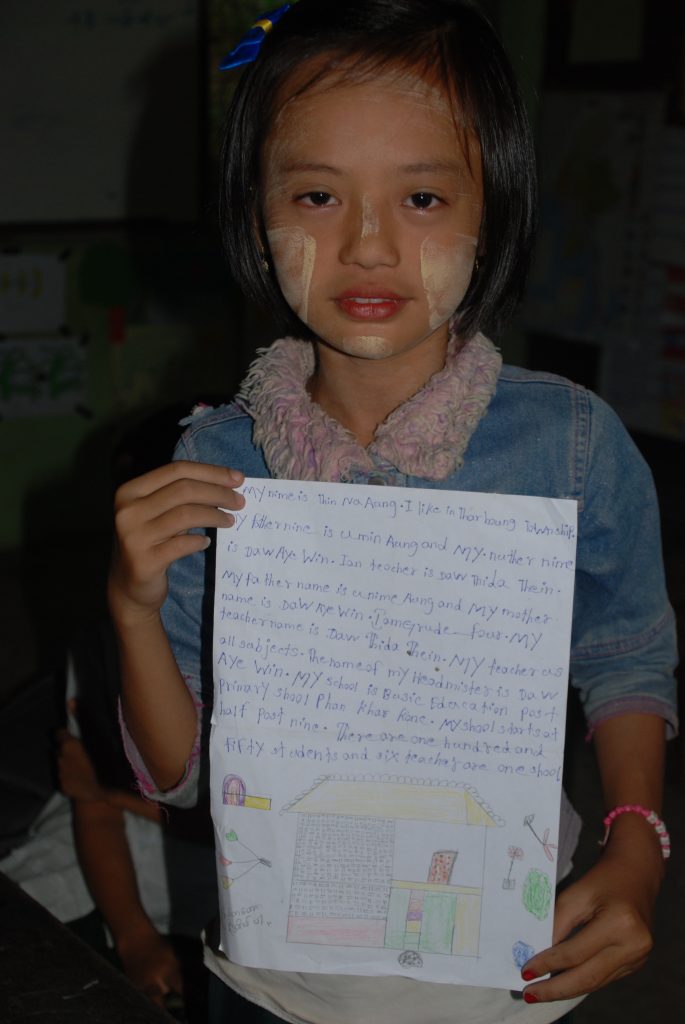 My nime is Thin Na Aung. I like in Tharboung Township.
My father nine is u min Aung and My. nurther nime
is Daw Aye Win. Ian teacher is Daw Thida Thein.
My father name is u nime Aung and My mother.
name is Daw Aye Win. Tameyrude four. My
teacher name is Daw Thida Thein. My teacher as
all subjects. The name of my Headmister is Daw
Aye Win. My school is Basic Edacation post
primary shool Phan Khar Kone. My shool starts at
half post nine. There are one hundred and
fifty students and six teachar are one shool